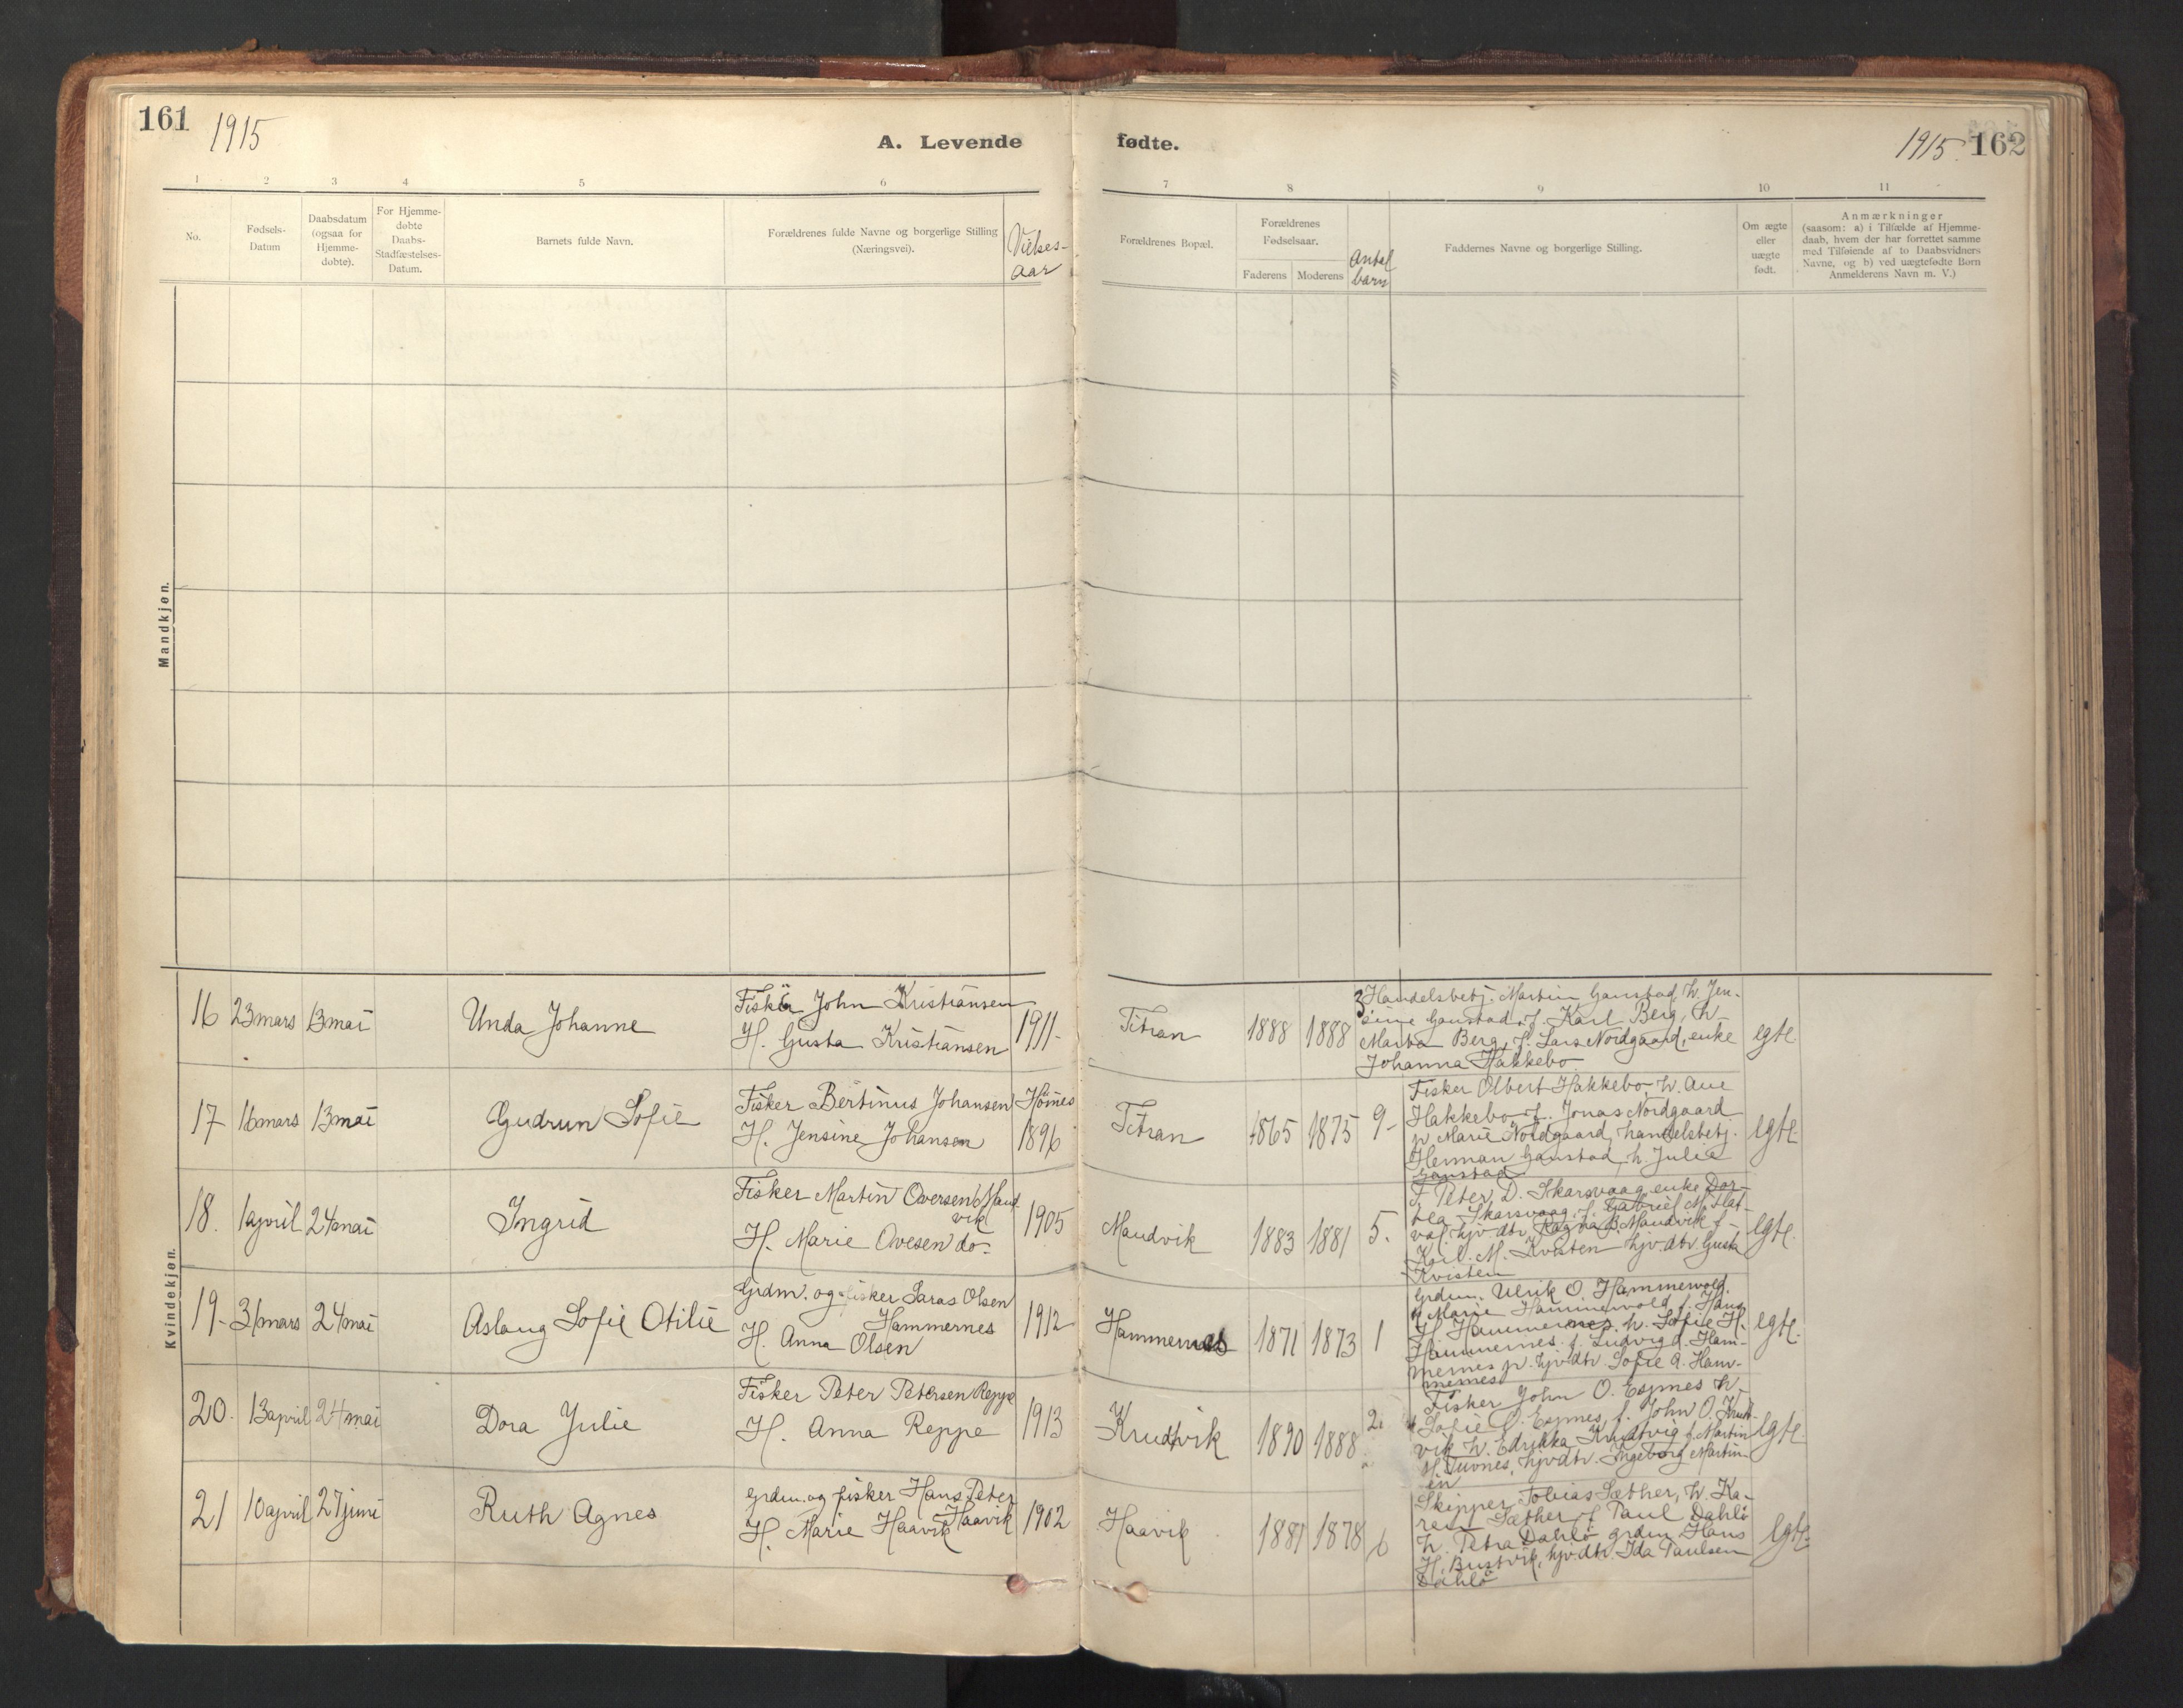 161
1915
A. Levende
fødte.
1915
162
1 2 3 4 5 6
7 8 9 10 11
No.
Fødsels-
Datum
Daabsdatum
(ogsaa for
Hjemme-
døbte).
For Hjemme-
døbte
Daabs-
Stadfæstelses-
Datum.
Barnets fulde Navn.
Forældrenes fulde Navne og borgerlige Stilling
(Næringsvei).
Vielses-
aar
Forældrenes Bopæl.
Forældrenes
Fødselsaar.
Faderens
Moderens
Antal
barn
Faddernes Navne og borgerlige Stilling.
Om ægte
eller
uægte
født.
Anmærkninger
(saasom: a) i Tilfælde af Hjemme-
daab, hvem der har forrettet samme
med Tilføiende af to Daabsvidners
Navne, og b) ved uægtefødte Børn
Anmelderens Navn m. V.)
Mandkjøn.
Kvindekjøn.
16 23 mars 13 mai
Unda Johanne
Fisker John Kristiansen
H. Gusta Kristiansen
1911-
Titran
1888 1888 3
Handelsbetj. Martin Gaustad, h. Jen-
sine Gaustad, f. Karl Berg, h.
Marta Berg, f. Lars Nordgaard, enke
Johanna Hakkebo
egte.
17 16 mars 13 mai
Gudrun Sofie
Fisker Bertinus Johansen
H. Jensine Johansen
1896
Titran
1865 1875 9-
Fisker Olbert Hakkebo, h. Ane
Hakkebo, f. Jonas Nordgaard
p Marie Nordgaard, handelsbetj.
Herman Gaustad, h. Julie
Gaustad
egte.
18. 1 april 24 mai
Ingrid
Fisker Martin Ovesen Maud-
vik
H. Marie Ovesen do-
1905
Maudvik
1883 1881 5.
F. Peter D. Skarsvaag, enke Dor-
tea Skarsvaag, f. Gabriel M. Slat-
val, hjv. dtr. Ragna B. Maudvik f
Karl. M. Kvisten hjv. dtr. Gusta
Kvisten
egte.
19- 31 mars 24 mai
Aslaug Sofie Otilie
Grdm. og fisker Laras Olsen
Hammernes
H. Anna Olsen
1912
Hammernes
1871 1873 1
Grdm. Ulrik O. Hammervold
p Marie Hammervold, f. Hans
H. Hammernes, h. Sofie H.
Hammernes, f. Ludvig d. Ham-
mernes p. hjv dtr. Sofie A. Ham-
mernes
egte.
20. 13 april 24 mai
Dora Julie
Fisker Peter Petersen Reppe
H. Anna Reppe
1913
Krudtvik
1890 1888 2
Fisker John O. Espnes h.
Sofie O. Espnes, f. John O. Krudt-
vik h. Edrikka Krudtvig f. Martin
hjvdtr. Ingeborg Martin
egte.
21 10 april 27 juni
Ruth Agnes
Grdm. og fisker Hans Peter
Haavik
H. Marie Haavik
1902
Haavik
1881 1878 6
Skipper Tobias Sæther, h. Ka-
ren Sæther f. Paul Dahlø
h. Petra Dahlø grdm Hans
H. Bustvik, hjvdtr. Ida Paulsen
Dahlø
egte.